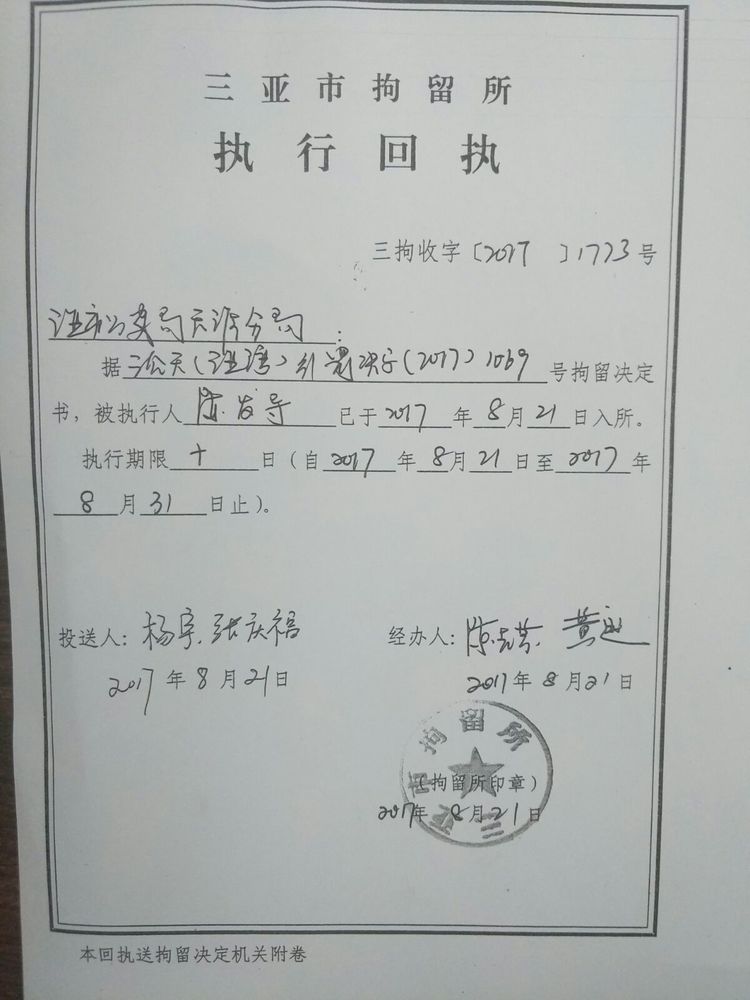 三亚市拘留所
执行回执
三拘收字〔2017 〕1773号
三亚市公安局天涯分局:
据三公天(三亚湾)行罚决字(2017)1069号拘留决定
书,被执行人陈发导已于2017年8月21日入所。
执行期限十日(自2017年8月21日至2017年
8月31日止)。
投送人:杨宇、张庆福
经办人:陈 黄
2017年8月21日
2017年8月21日
三亚市拘留所
(拘留所印章)
2017年8月21日
本回执送拘留决定机关附卷